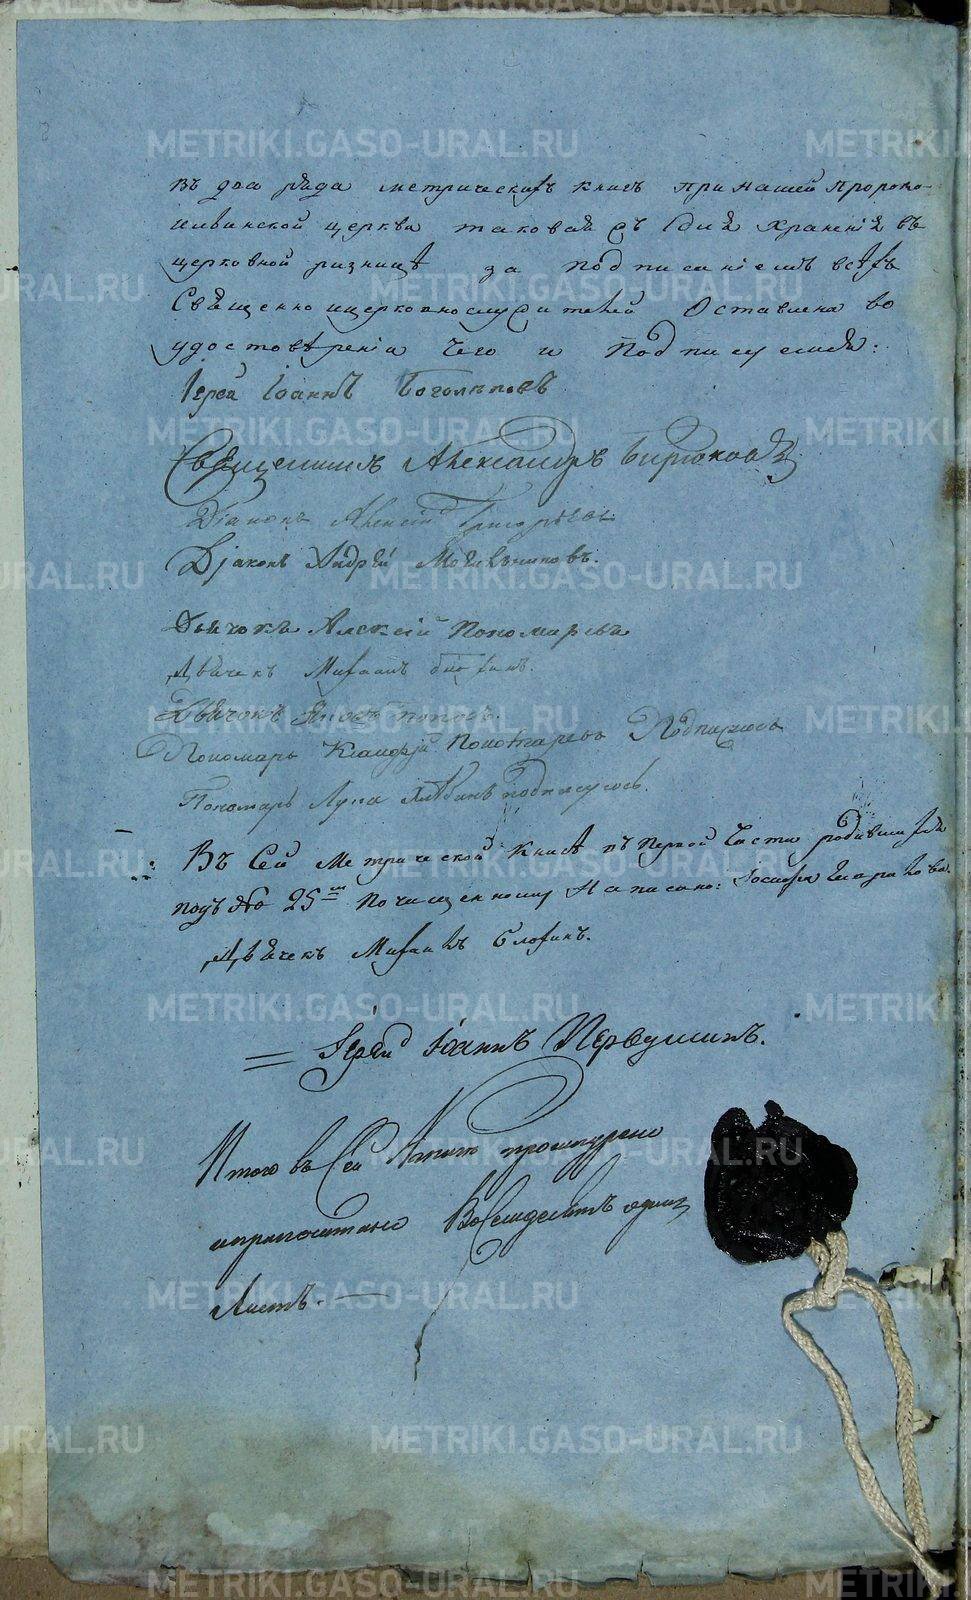 въ два ряда метрическихъ книгъ при нашей Пророко-
ильинской церкви таковая съ для храненія въ
церковной ризницѣ за подписаніемъ всѣхъ
Священно ицерковнослужителей Оставлена во
удостовѣреніи чего и Подписуемся:
Іерей Іоаннъ Боголѣповъ
Священникъ Александръ Бирюковъ
Діаконъ Алексій Григорьевъ
Діаконъ Андрей
Дьячокъ Алексій Пономаревъ
Дьячекъ Михаилъ Блохинъ.
Дьячокъ Поповъ.
Пономарь Пономаревъ Подписуюсь
Пономарь Лука подписуюсь.
Въ Сей Метрической книгѣ въ первой Части родившихся
подъ № 25м почищенному Написано:
Дьячекъ Михаилъ Блохинъ.
Іерей Іоаннъ Первушинъ.
Итого въ Сей Книге прошнурено
ипропечатано Восемдесятъ одинъ
Листъ.
METRIKI.GASO-URAL.RU